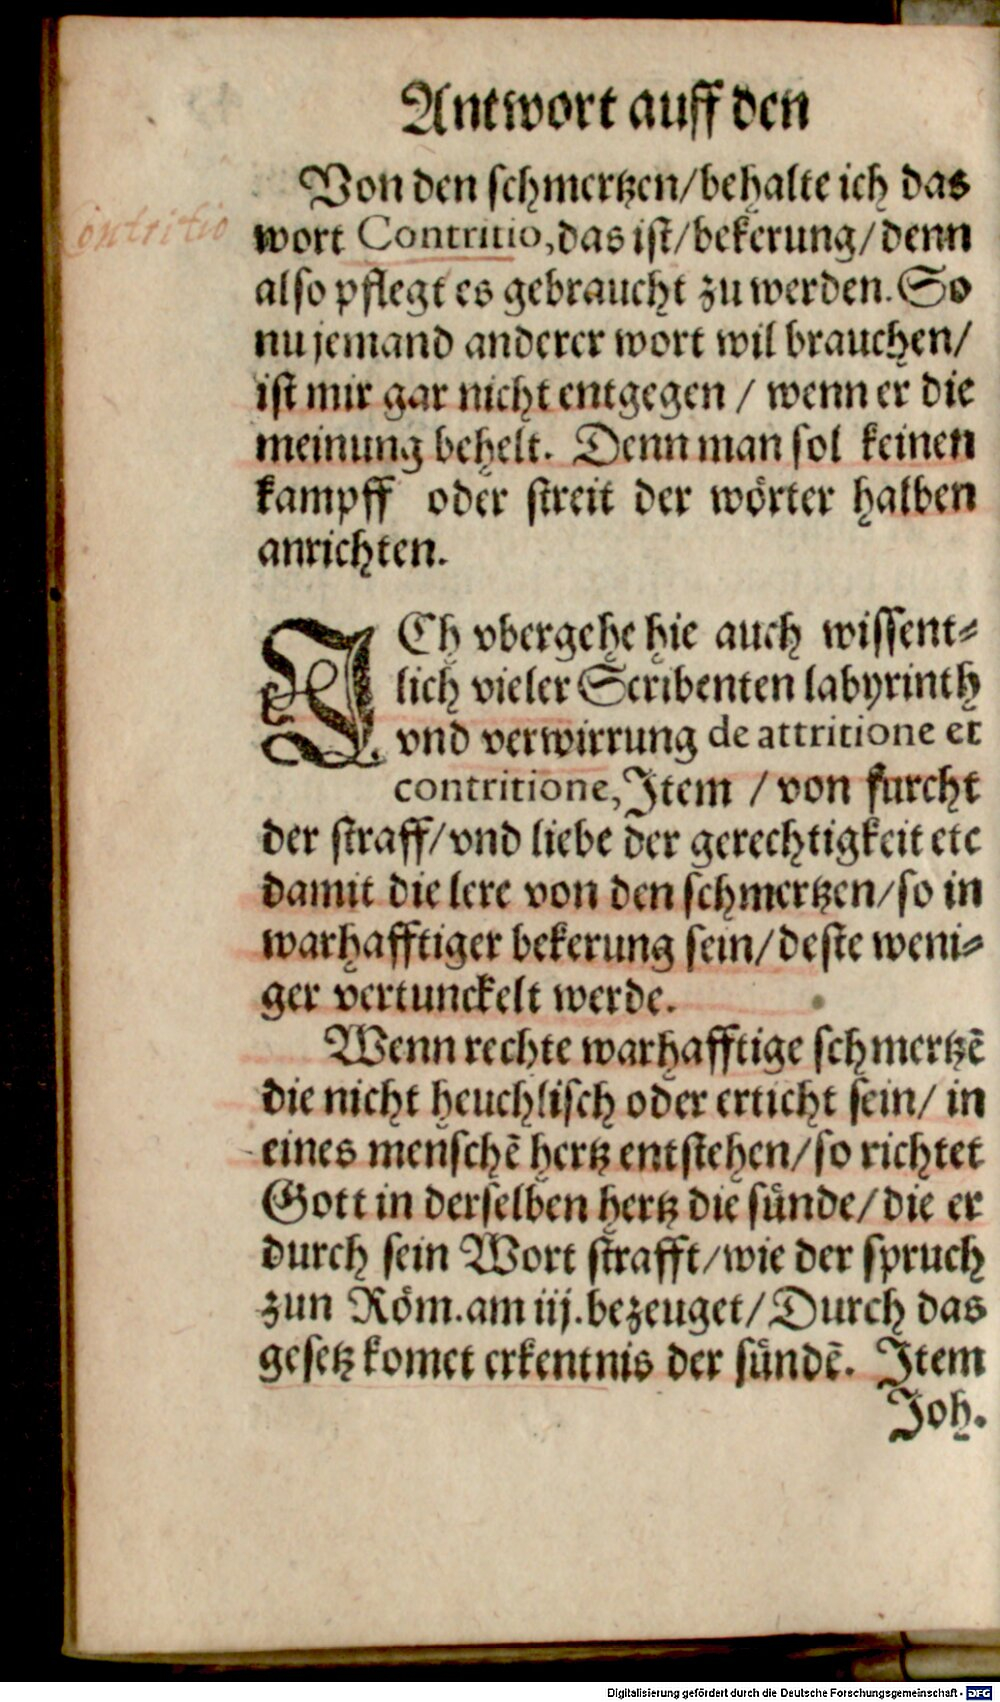 Antwort auff den
Von den schmertzen/behalte ich das
Contritio
wort Contritio, das ist/bekerung/denn
also pflegt es gebraucht zu werden. So
nu jemand anderer wort wil brauchen/
ist mir gar nicht entgegen / wenn er die
meinung behelt. Denn man sol keinen
kampff oder streit der wörter halben
anrichten.
ICh vbergehe hie auch wissent-
lich vieler Scribenten labyrinth
vnd verwirrung de attritione et
contritione, Item / von furcht
der straff/vnd liebe der gerechtigkeit etc
damit die lere von den schmertzen/so in
warhafftiger bekerung sein/deste weni-
ger vertunckelt werde.
Wenn rechte warhafftige schmertzē
die nicht heuchlisch oder erticht sein/ in
eines menschē hertz entstehen/so richtet
Gott in derselben hertz die sünde/die er
durch sein Wort strafft/wie der spruch
zun Röm. am iij. bezeuget/Durch das
gesetz komet erkentnis der sündē. Item
Joh.
Digitalisierung gefördert durch die Deutsche Forschungsgemeinschaft - DFG